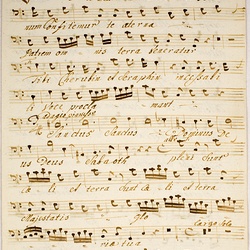 num Confitemur te aeterna
Patrem omnis terra veneratur
Tibi Cherubin et Seraphin incessabi
li voce procla mant
Adagio
Sanctus Sanctus Dominus De
us Deus Sabaoth pleni sunt
caeli et terra sunt caeli et terra
Majestatis glo
riae tuae